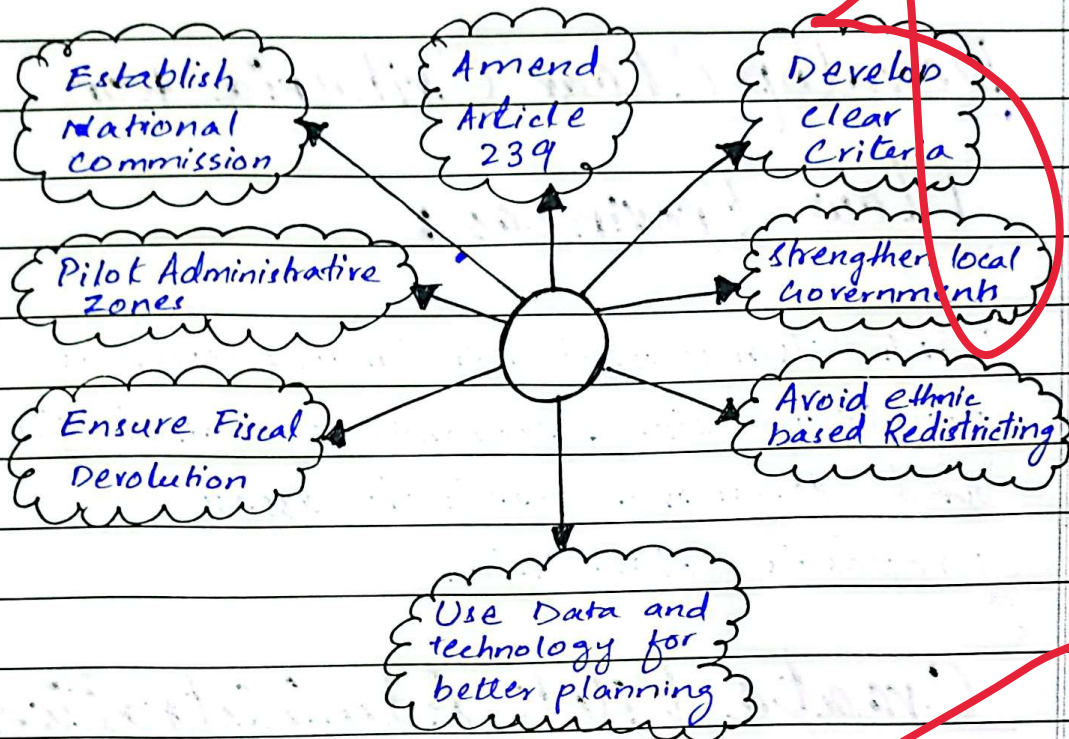 Establish
National
commission
Amend
Article
239
Develop
clear
Criteria
Pilot Administrative
zones
strengthen local
Government
Ensure Fiscal
Devolution
Avoid ethnic
based Redistricting
Use Data and
technology for
better planning